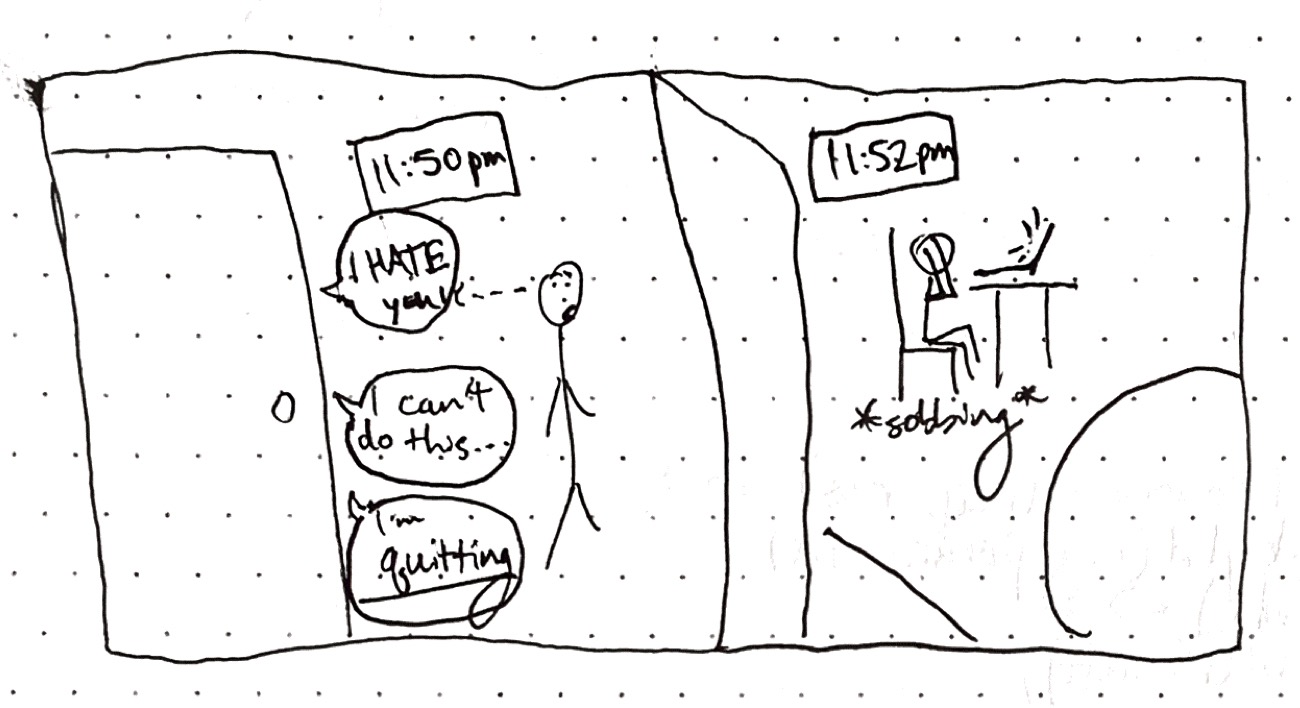 11:50pm
I HATE
you
I can't
do this...
I'm
quitting
11:52pm
*sobbing*